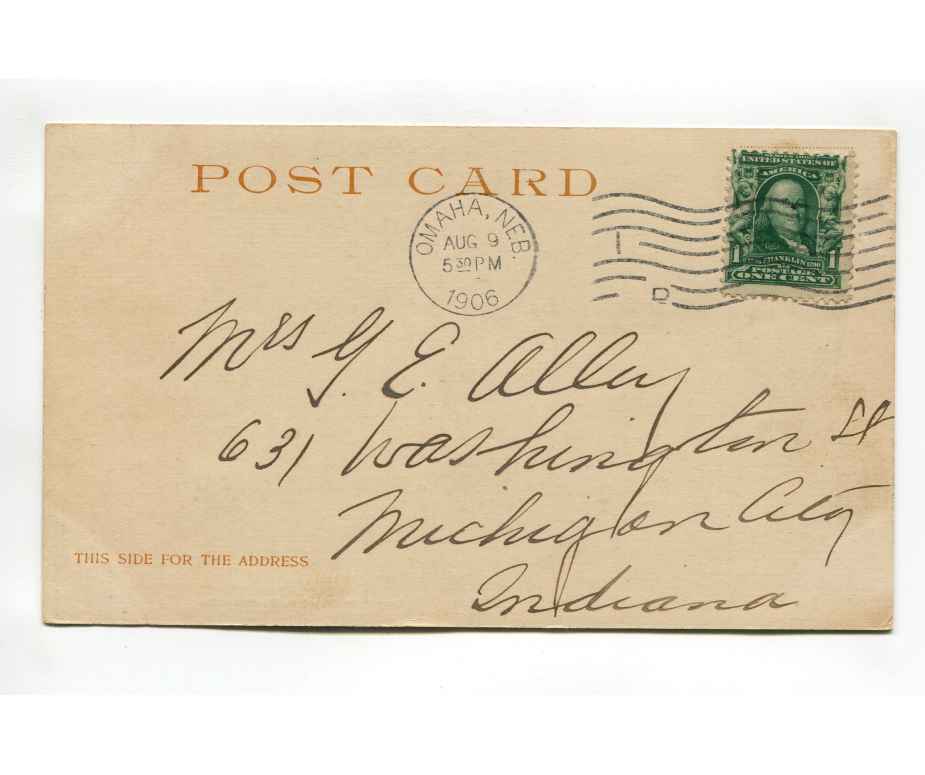 POST CARD
OMAHA, NEB.
AUG 9
5 30 PM
1906
UNITED STATES OF
AMERICA
FRANKLIN 1790
POSTAGE
1 ONE CENT 1
D
Mrs G. E. Alley
631 Washington St
Michigan City
Indiana
THIS SIDE FOR THE ADDRESS